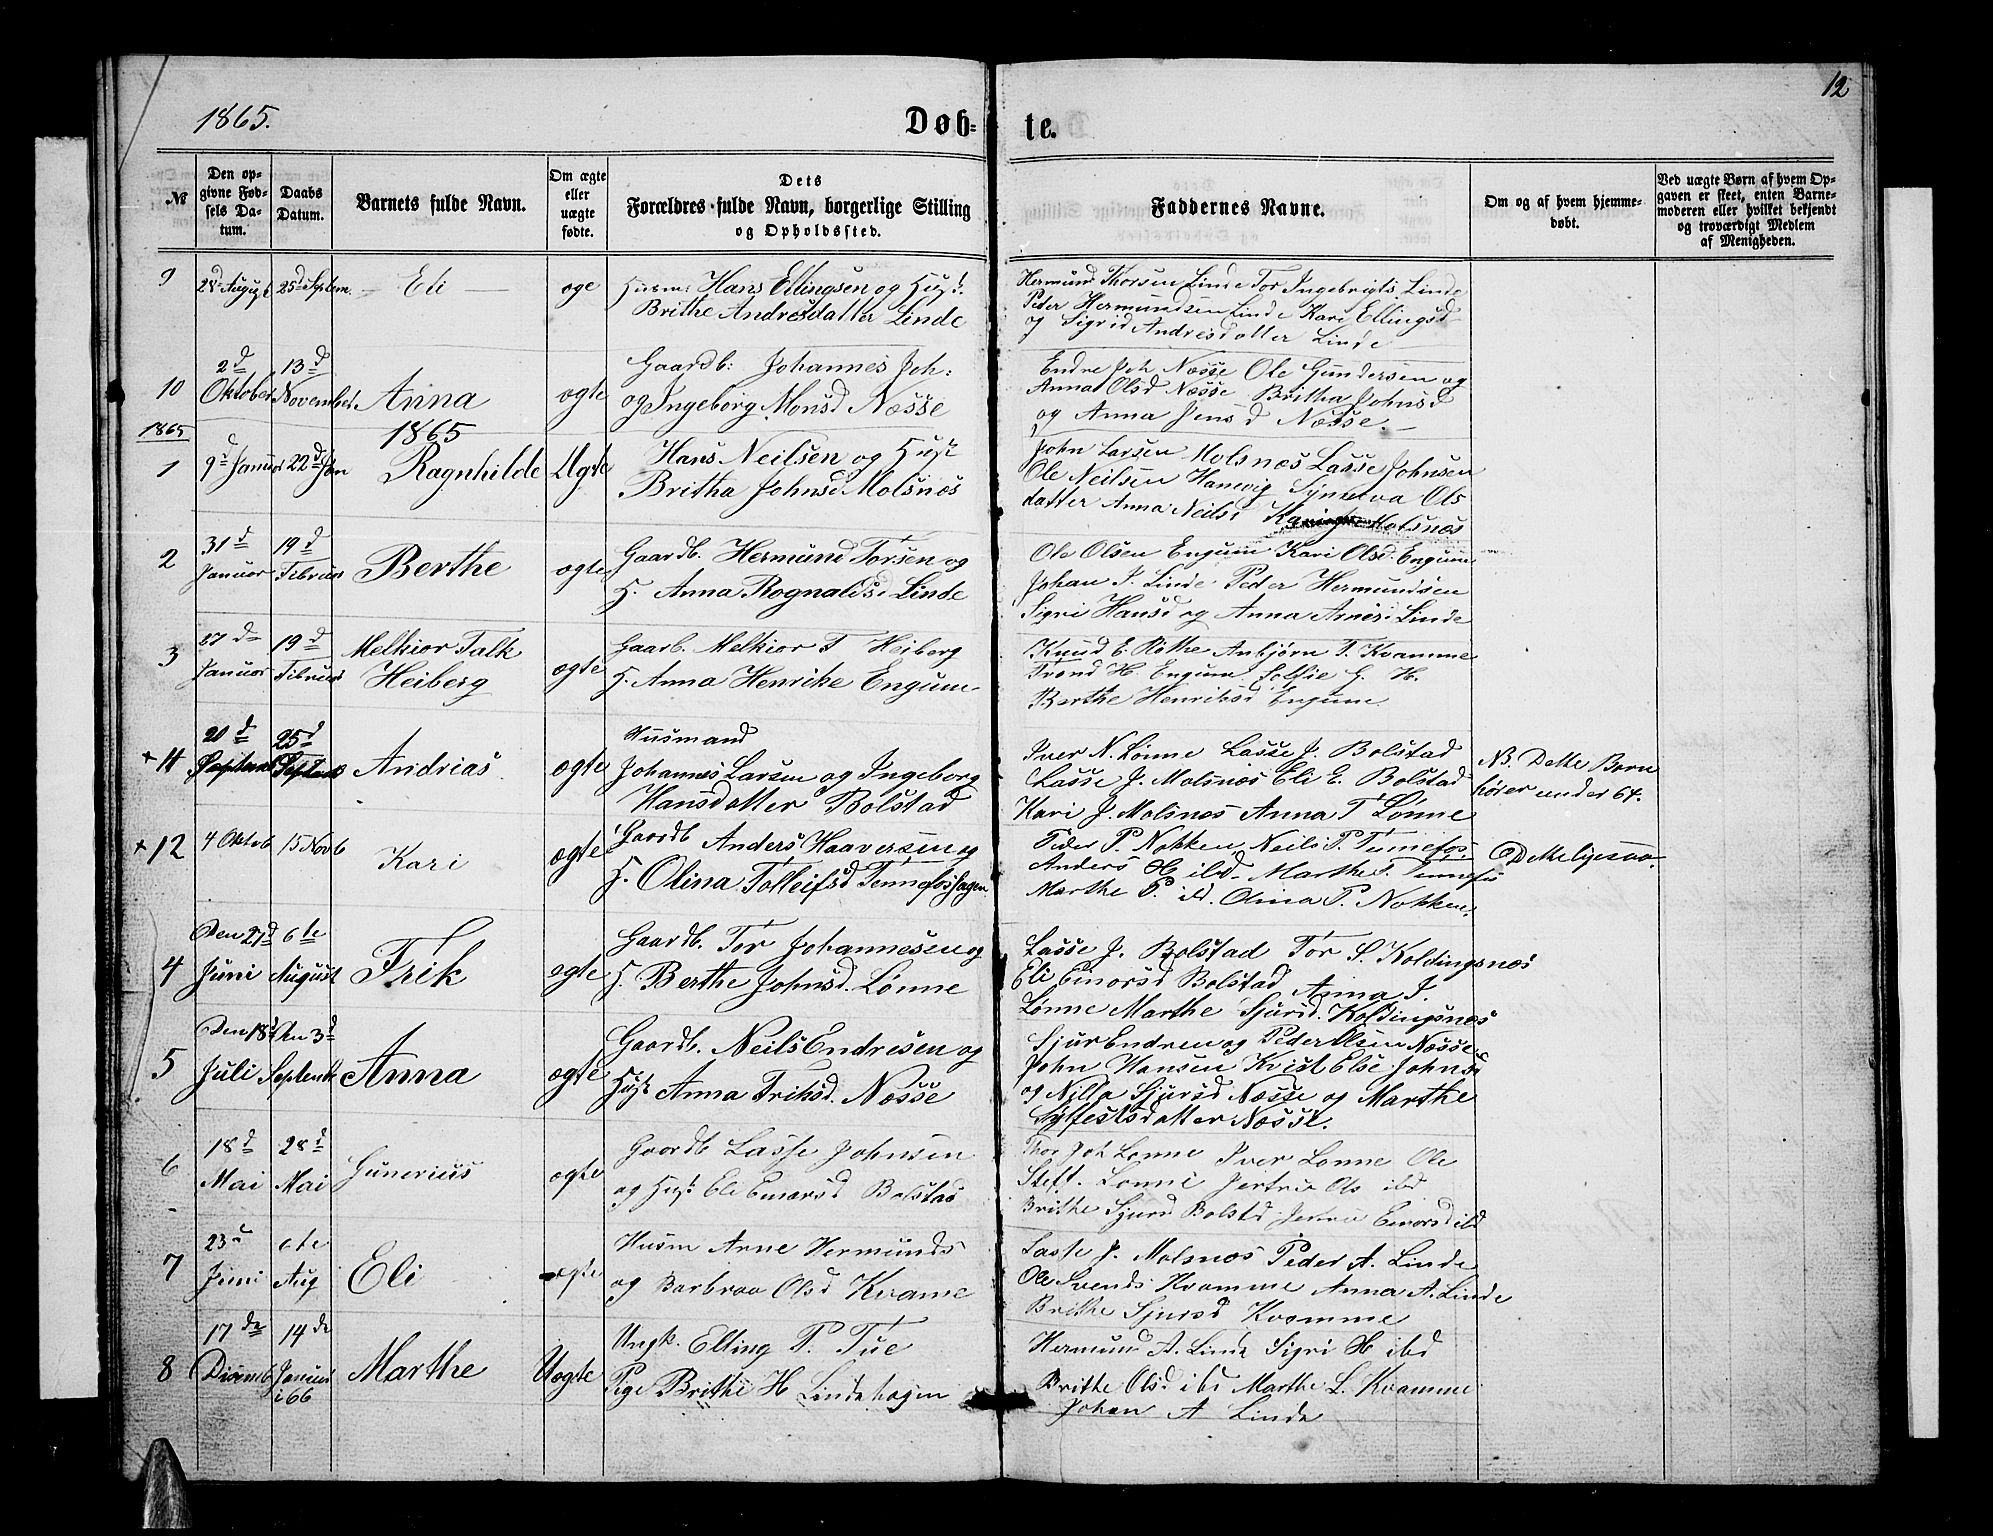 12
1865.
Døb-
te.
№
Den op-
givne Fød-
sels Da-
tum.
Daabs
Datum.
Barnets fulde Navn.
Om ægte
eller
uægte
fødte.
Dets
Forældres fulde Navn, borgerlige Stilling
og Opholdssted.
Faddernes Navne.
Om og af hvem hjemme-
døbt.
Ved uægte Børn af hvem Op-
gaven er skeet, enten Barne-
moderen eller hvilket bekjendt
og troværdigt Medlem
af Menigheden.
9
28d August
25d Septem.
Eli
ægte
Husm: Hans Ellingsen og Hust.
Brithe Andresdatter Linde
Hermund Thorsen Linde Tor Ingebrigts. Linde
Peder Hermundsen Linde Kari Ellingsd
og Sigrid Andresdatter Linde
10
2d
Oktober
13d
November
Anna
ægte
Gaardb: Johannes Joh:
og Ingeborg Monsd Næsse
Endre Joh Næsse Ole Gundersen og
Anna Olsd Næsse Britha Johnsd
og Anna Jensd Næsse.
1865
1865
1
9d Januar
22d Jan
Ragnhilde
Ægte
Hans Neilsen og Hust
Britha Johnsd Molsnæs
John Larsen Molsnæs Lasse Johnsen
Ole Neilsen Hamvig Synneva Ols
datter Anna Neilsd Molsnæs
2
31d
Januar
19d
Februar
Berthe
ægte
Gaardb. Hermund Torsen og
H. Anna Rognaldsd Linde
Ole Olsen Engum Kari Olsd. Engum
Johan J. Linde Peder Hermundsen
Sigri Hansd og Anna Arnesd Linde
3
27de
Januar
19d
Februar
Melkior Falk
Heiberg
ægte
Gaarb. Melkior F Heiberg
H. Anna Henrike Engum
Knud E. Røthe Anbjørn T. Kvamme
Trond H. Engum Solfie G. H.
Berthe Henriksd Engum
+ 11
20d
Septemb
25d
Septemb
Andrias
ægte
Husmand
Johannes Larsen og Ingeborg
Hansdatter Bolstad
Iver N. Lønne Lasse J. Bolstad
Lasse J. Molsnæs Eli E. Bolstad
Kari J. Molsnæs Anna T Lønne
NB. Dette Barn
hører under 64.
+ 12
4 Oktob
15 Novb
Kari
ægte
Gaardb Anders Haaversen og
H. Olina Tolleifsd Tennefoshagen
Peder P. Nokken Neils P. Tennefos.
Anders H ibd. Marthe T. Tennefos
Marthe P. ibd. Olina P. Nokken.
Dette ligesaa.
4
Den 27d
Juni
6te
August
Frik
ægte
Gaardb. Tor Johannesen og
H. Berthe Johnsd. Lønne
Lasse J. Bolstad Tor S. Koldingsnæs
Eli Einorsd Bolstad Anna J.
Lønne Marthe Sjursd. Koldingsnæs
5
Den 18d
Juli
Den 3d
Septemb
Anna
ægte
Gaardb. Neils Endresen og
Hust Anna Friksd. Næsse
Sjur Endren og Peder Olsen Næsse
John Hansen Kvist Else Johnsd
og Nilla Sjursd Næsse og Marthe
Sylfestsdatter Næsse.
6
18d
Mai
28d
Mai
Gunerius
ægte
Gaardb Lasse Johnsen
og Hust Eli Einarsd Bolstad
Thor Joh Lønne Iver Lønne Ole
Steff. Lønne Jertrue Ols ibd
Brithe Sjursd Bolstd Einorsd ibd
7
23d
Juni
6te
Aug
Eli
ægte
Husm Arne Hermunds
og Barbraa Olsd Kvame
Lasse J. Molsnæs Peder A. Linde
Ole Svends Kvamme Anna A. Linde
Brithe Sjursd Kvamme
8
17de
Decemb
14de
Januar
i 66
Marthe
Uægte
Ungk. Elling P. Tue
Pige Brithe H Lindehagen
Hermund A. Linde Sigri H ibd
Brithe Olsd ibd Marthe L. Kvamme
Johan A Linde